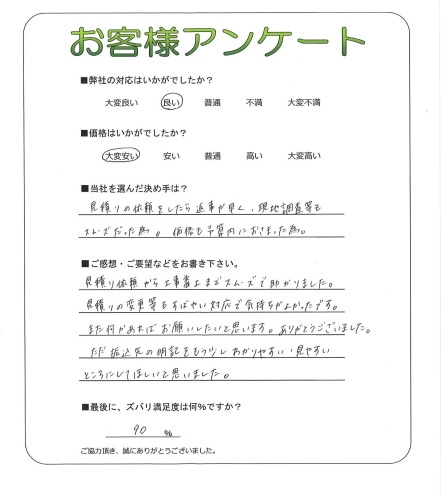 お客様アンケート
■弊社の対応はいかがでしたか?
大変良い 良い 普通 不満 大変不満
■価格はいかがでしたか?
大変安い 安い 普通 高い 大変高い
■当社を選んだ決め手は?
見積りの依頼をしたら返事が早く、現地調査等も
スムーズだった為。価格も予算内におさまった為。
■ご感想・ご要望などをお書き下さい。
見積り依頼から工事完了までスムーズで助かりました。
見積りの変更等もすばやい対応で気持ちがよかったです。
また何かあればお願いしたいと思います。ありがとうございました。
ただ振込先の明記をもう少しわかりやすい・見やすい
ところにしてほしいと思いました。
■最後に、ズバリ満足度は何%ですか?
90 %
ご協力頂き、誠にありがとうございました。